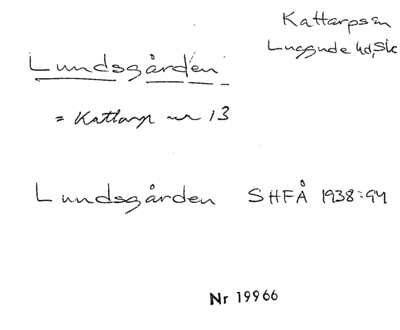 Kattarps sn
Luggude hd, Sk
Lundsgården
= Kattarp nr 13
Lundsgården SHFÅ 1938:94
Nr 19966